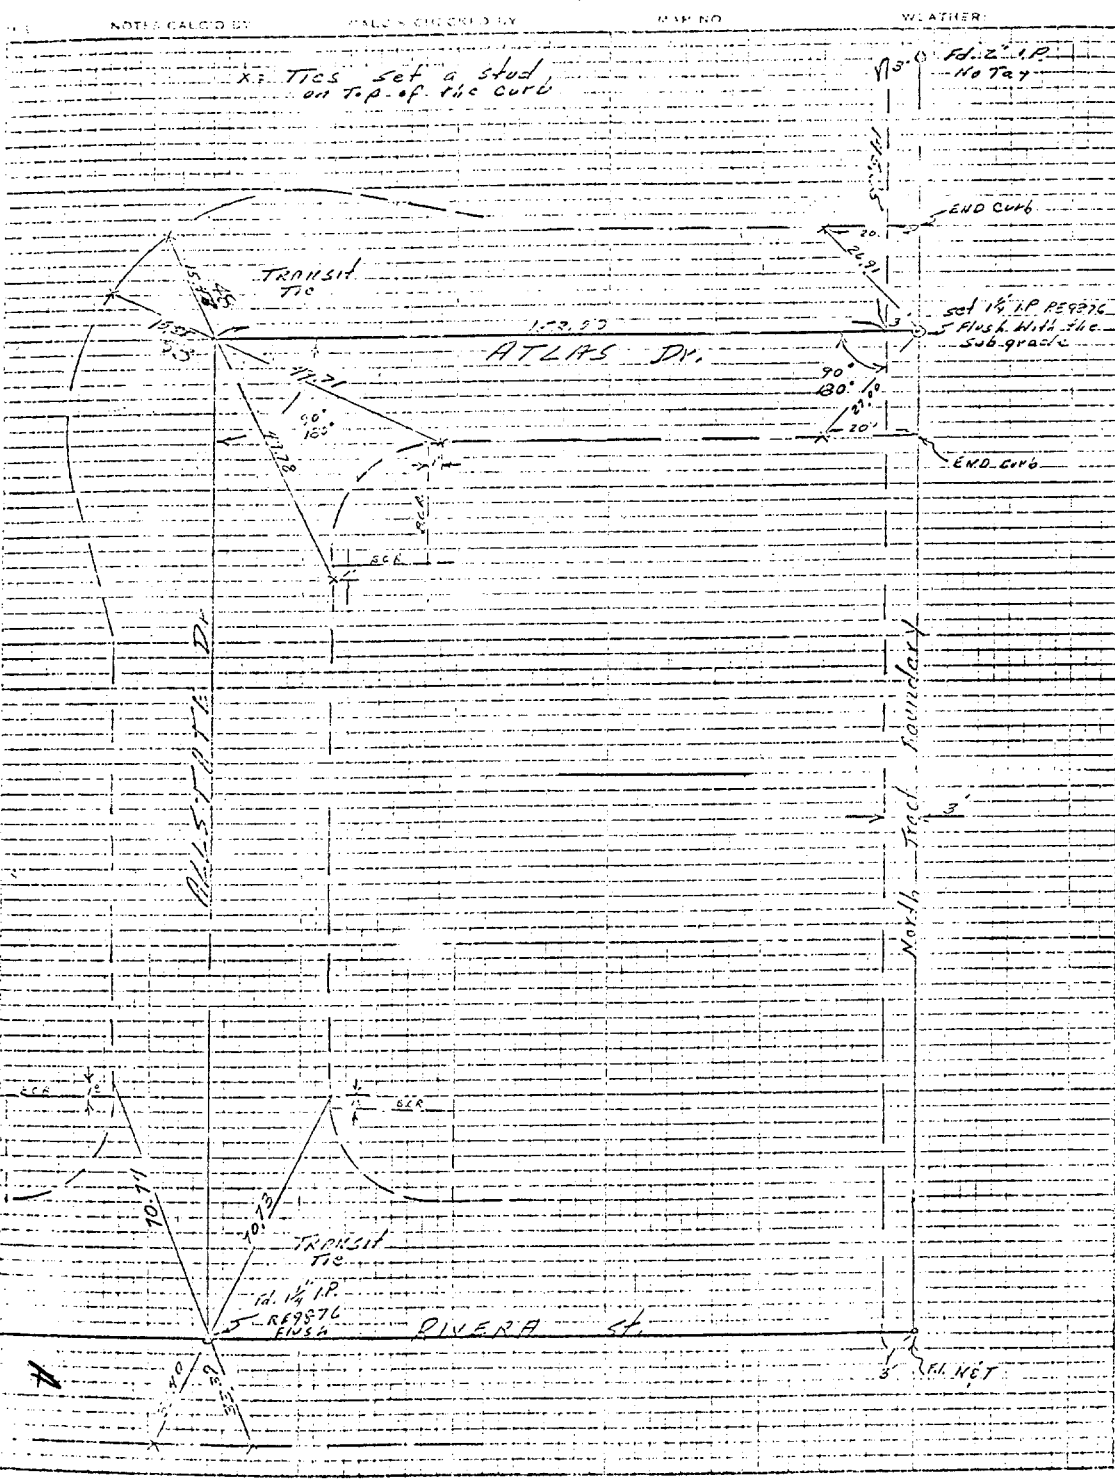 NOTES CALC'D BY
CALC'S CHECKED BY
MAP NO.
WEATHER:
X = Ties set a stud
on Top of the curb
3'
Fd. 2" I.P.
No Tag
END Curb
20'
26.91
TRANSIT
TIE
ATLAS Dr.
set 1¼" I.P. RE9876
Flush With the
Sub grade
90°
180°
27.00
20'
END Curb
47.71
90°
180°
47.78
BCR
ALLSTATE Dr
North Tract Boundary
3'
ECR
BCR
70.71
70.73
TRANSIT
TIE
Fd. 1¼" I.P.
RE9876
Flush
RIVERA St.
35.39
3'